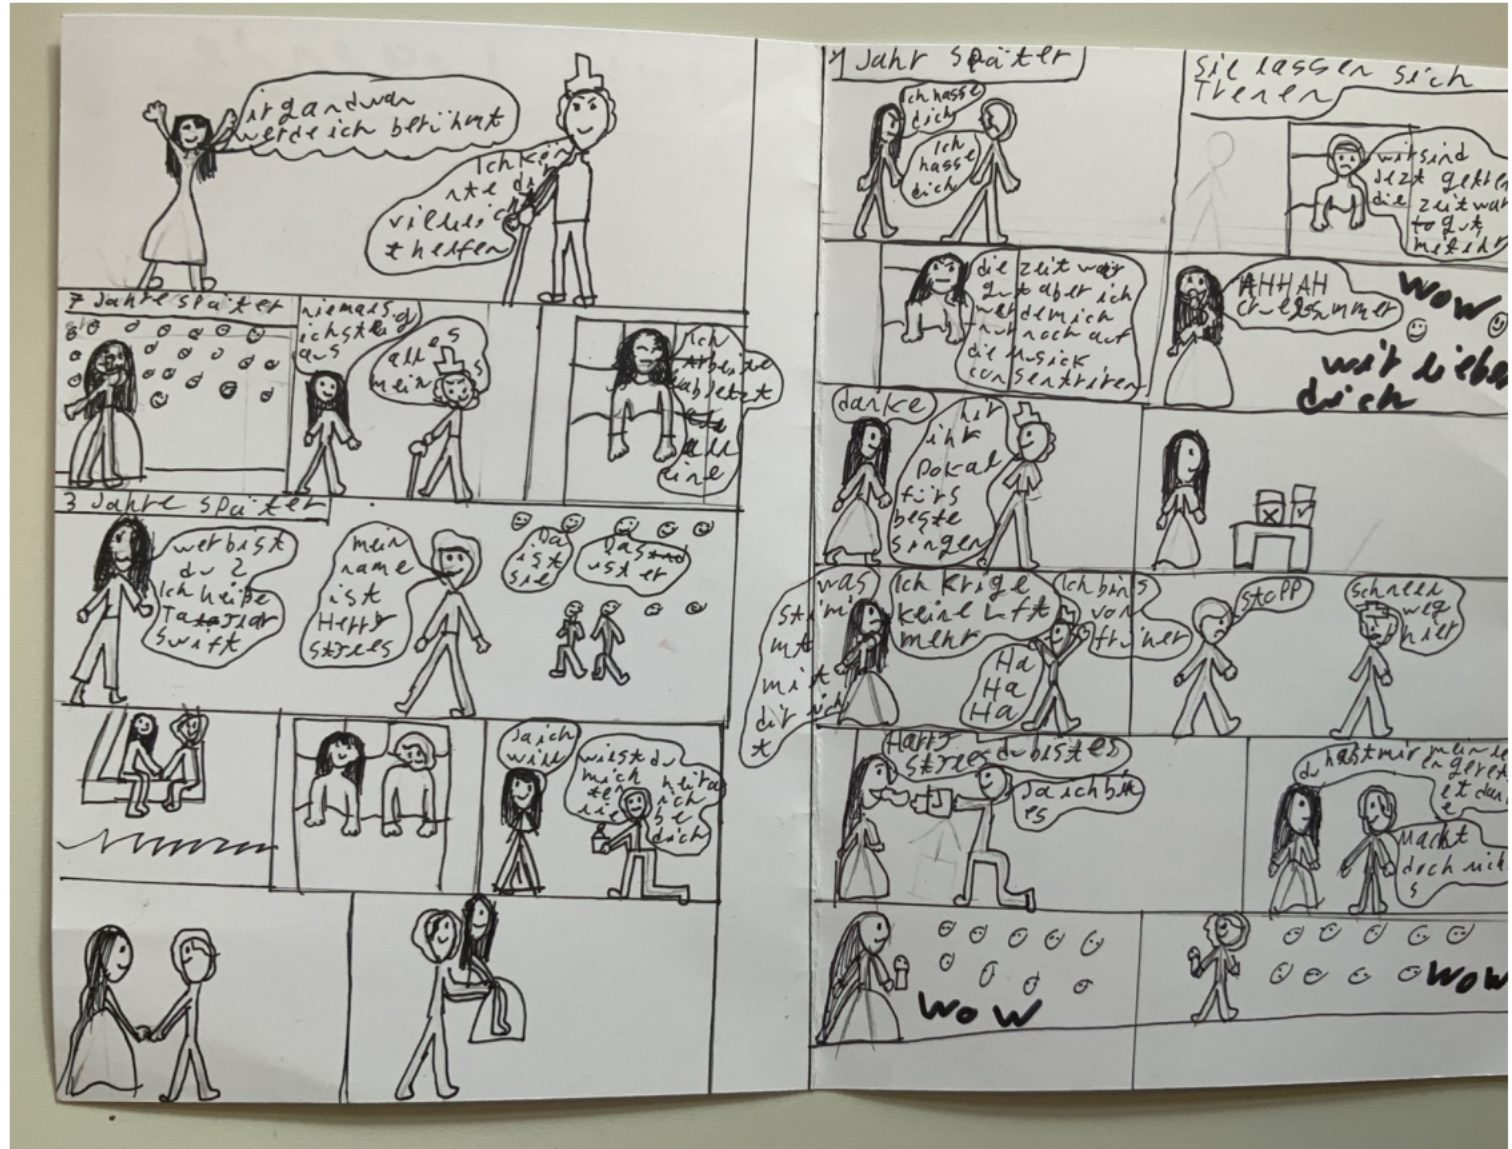 irgandwan
werde ich berühmt
Ich kön
nte dir
villeic
t helfen
7 Jahre später
niemals
ich steig
aus
alles
mein
Ich
arbeite
abletzt
all
eine
3 Jahre später
wer bist
du?
Ich heiße
swift
mein
name
ist
Herry
strees
Da
ist
sie
Das
ist er
Ja ich
will
wilst du
mich
heira
ten
ich
lie
be
dich
1 Jahr später
Ich hasse
dich
Ich
hasse
dich
Sie lassen sich
Trenen
wir sind
Jezt getren
die zeit war
gut
mit dir
die zeit war
gut aber ich
werde mich
nur noch auf
die Musick
consentriren
AHHAH
WOW
wir lieben
dich
danke
hir
ihr
Pokal
fürs
beste
singen
was
stimm
mt
mit
dir nich
t
Ich krige
keine Lft
mehr
Ich bins
von
früher
Ha
Ha
Ha
stopp
schnell
weg
hier
Harry
strees du bist es
Ja ich bin
es
du hast mir mein le
en geret
et dan
e
Macht
doch nich
s
WOW
WOW